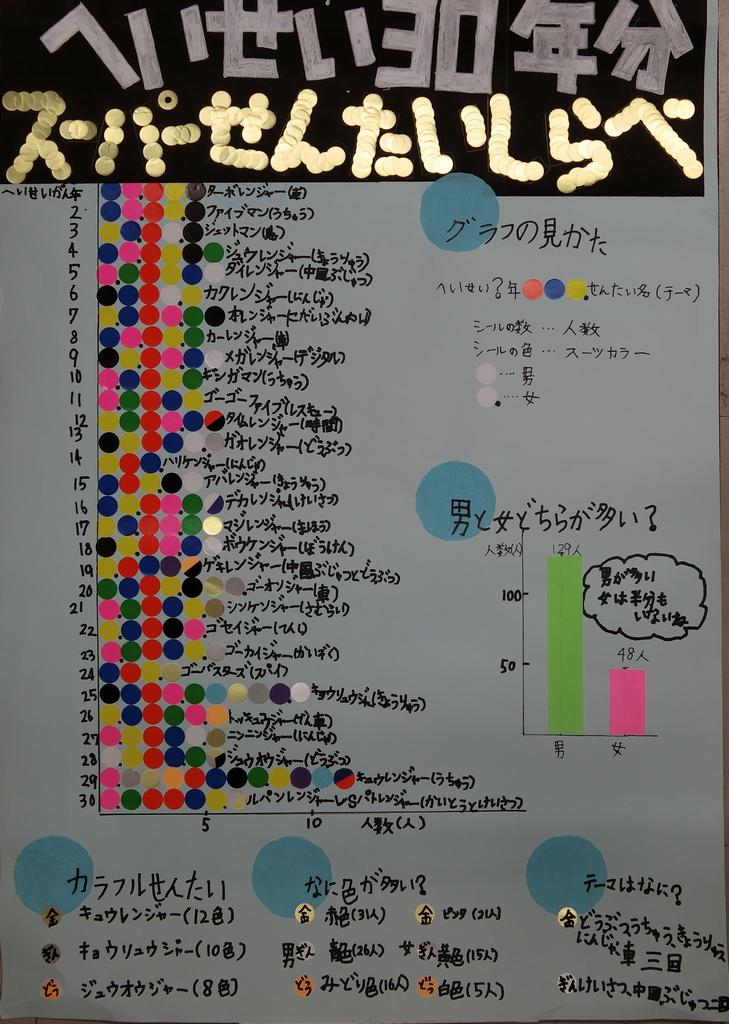 へいせい30年分
スーパーせんたいしらべ
へいせいがん年 ターボレンジャー(車)
2 ファイブマン(うちゅう)
3 ジェットマン(鳥)
4 ジュウレンジャー(きょうりゅう)
5 ダイレンジャー(中国ぶじゅつ)
6 カクレンジャー(にんじゃ)
7 オーレンジャー(こだいぶんめい)
8 カーレンジャー(車)
9 メガレンジャー(デジタル)
10 ギンガマン(うちゅう)
11 ゴーゴーファイブ(レスキュー)
12 タイムレンジャー(時間)
13 ガオレンジャー(どうぶつ)
14 ハリケンジャー(にんじゃ)
15 アバレンジャー(きょうりゅう)
16 デカレンジャー(けいさつ)
17 マジレンジャー(まほう)
18 ボウケンジャー(ぼうけん)
19 ゲキレンジャー(中国ぶじゅつとどうぶつ)
20 ゴーオンジャー(車)
21 シンケンジャー(さむらい)
22 ゴセイジャー(てんし)
23 ゴーカイジャー(かいぞく)
24 ゴーバスターズ(スパイ)
25 キョウリュウジャー(きょうりゅう)
26 トッキュウジャー(でん車)
27 ニンニンジャー(にんじゃ)
28 ジュウオウジャー(どうぶつ)
29 キュウレンジャー(うちゅう)
30 ルパンレンジャーVSパトレンジャー(かいとうとけいさつ)
5 10 人数(人)
グラフの見かた
へいせい?年 せんたい名(テーマ)
シールの数…人数
シールの色…スーツカラー
…男
…女
男と女どちらが多い?
人数(人)
129人
100
50
48人
男が多い
女は半分も
いないね。
男 女
カラフルせんたい
金 キュウレンジャー(12色)
ぎん キョウリュウジャー(10色)
どう ジュウオウジャー(8色)
なに色が多い?
金 赤色(31人) 金 ピンク(21人)
男 ぎん 青色(26人) 女 ぎん 黄色(15人)
どう みどり色(16人) どう 白色(5人)
テーマはなに?
金 どうぶつ、うちゅう、きょうりゅう
にんじゃ、車 三回
ぎん けいさつ、中国ぶじゅつ 二回